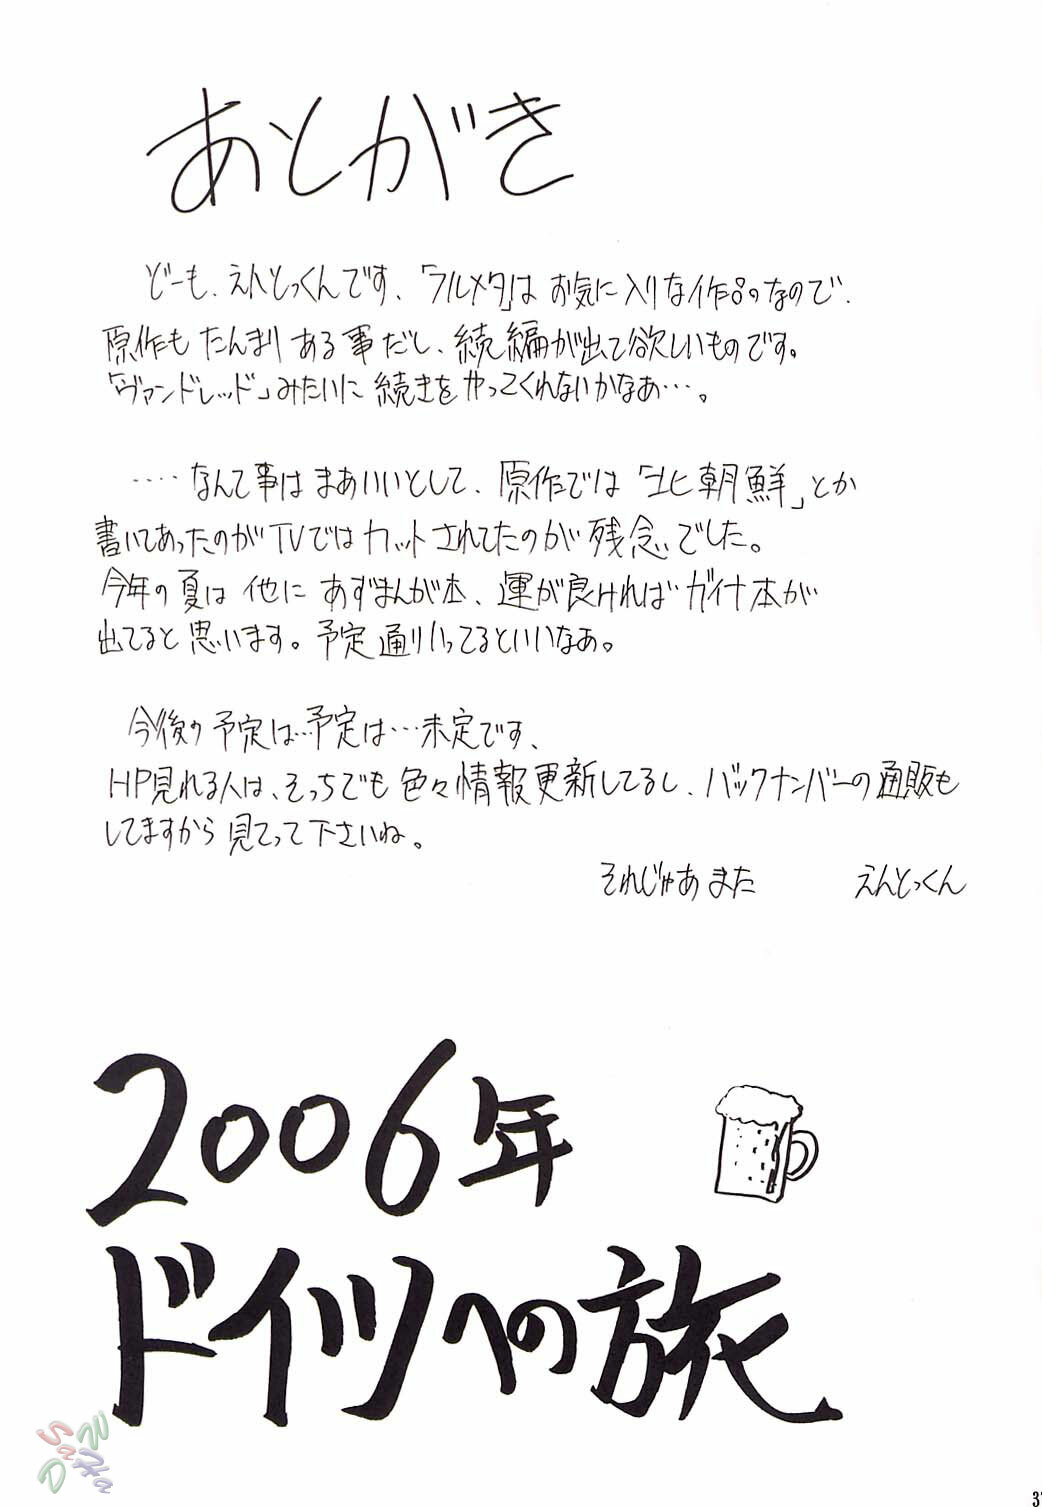 あとがき
どーも、えんとっくんです、「フルメタ」は お気に入りな作品のなので、
原作も たんまり ある事だし、続編が出て欲しいものです。
「ヴァンドレッド」みたいに 続きを やってくれないかなあ…。
‥‥なんて事は まあいいとして、原作では「北朝鮮」とか
書いてあったのがTVでは カットされてたのが 残念でした。
今年の夏は 他に あずまんが本、運が良ければ ガイナ本が
出てると 思います。予定通りいってるといいなあ。
今後の予定は…予定は…未定です、
HP見れる人は、そっちでも 色々情報更新してるし、バックナンバーの通販も
してますから 見てって 下さいね。
それじゃあ また えんとっくん
2006年
ドイツへの旅